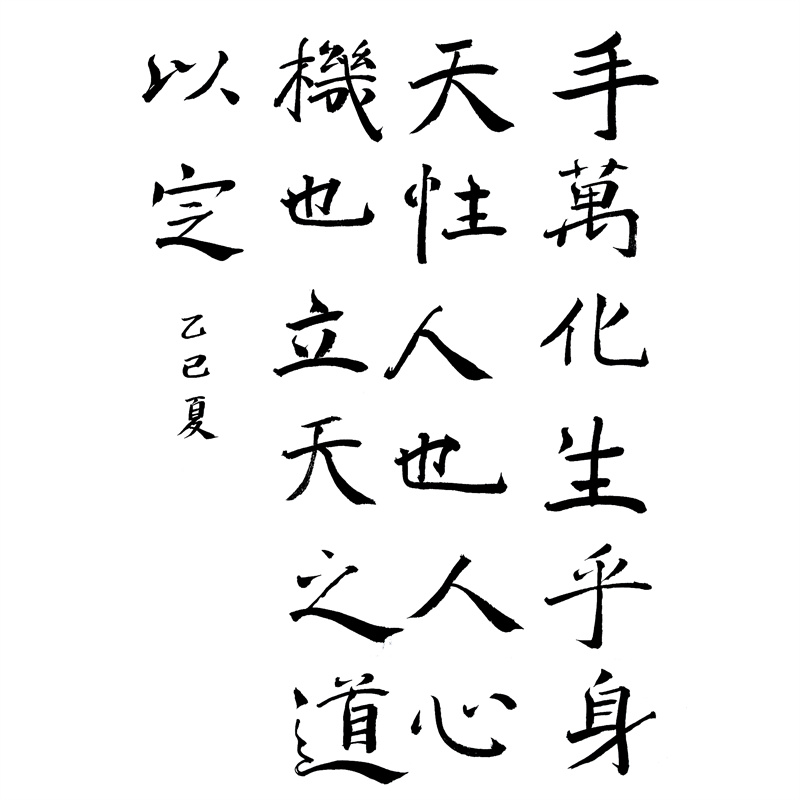 手萬化生乎身
天性人也人心
機也立天之道
以定
乙巳夏